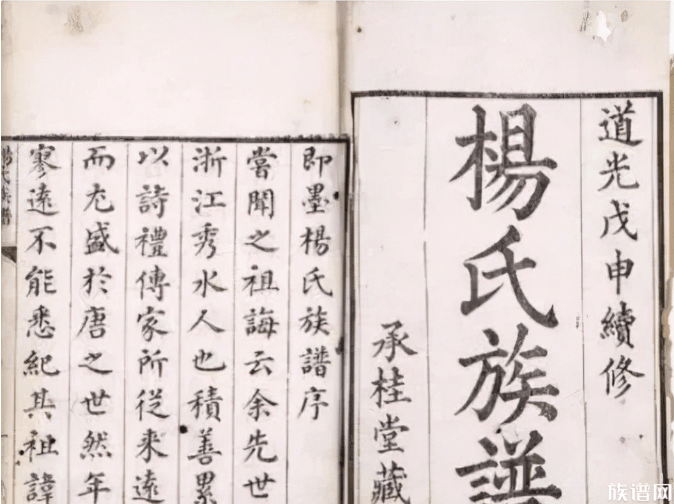 道光戊申續修
楊氏族譜
承桂堂藏
即墨楊氏族譜序
嘗聞之祖誨云余先世
浙江秀水人也積善累
以詩禮傳家所從來遠
而尤盛於唐之世然年
寥遠不能悉紀其祖諱
族谱网